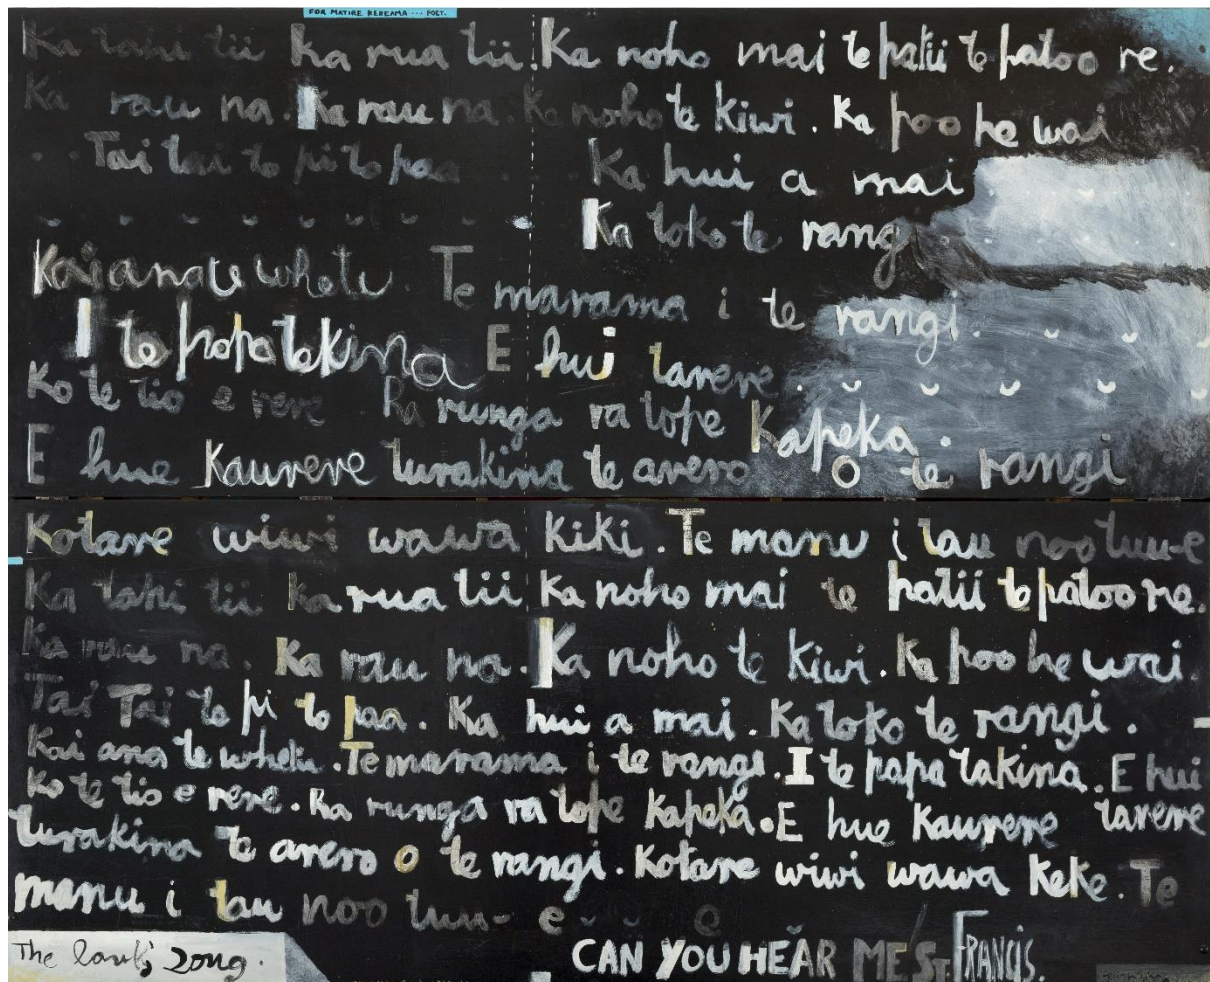 FOR MATIRE KEREAMA ... POET.
Ka tahi tii Ka rua tii. Ka noho mai te patii te patoo re.
Ka rau na. Ka rau na. Ka noho te kiwi. Ka poo he wai
. . Tai tai to pi to paa Ka hui a mai
Ka toko te rangi
Kai ana te whetu. Te marama i te rangi.
I te papa takina E hui tarere.
Ko te tio e rere Ra runga ra tope Kapeka.
E hue Kaurere turakina te arero O te rangi
Kotare wiwi wawa Kiki. Te manu i tau noo tuu-e
Ka tahi tii Ka rua tii Ka noho mai te patii te patoo re.
Ka rau na. Ka rau na. Ka noho te kiwi. Ka poo he wai.
Tai Tai to pi to paa. Ka hui a mai. Ka toko te rangi.
Kai ana te whetu. Te marama i te rangi. I te papa takina. E hui
Ko te tio e rere. Ra runga ra tope Kapeka. E hue Kaurere tarere
turakina te arero o te rangi. Kotare wiwi wawa Keke. Te
manu i tau noo tuu- e e
The lark's song.
CAN YOU HEAR ME/ST FRANCIS.